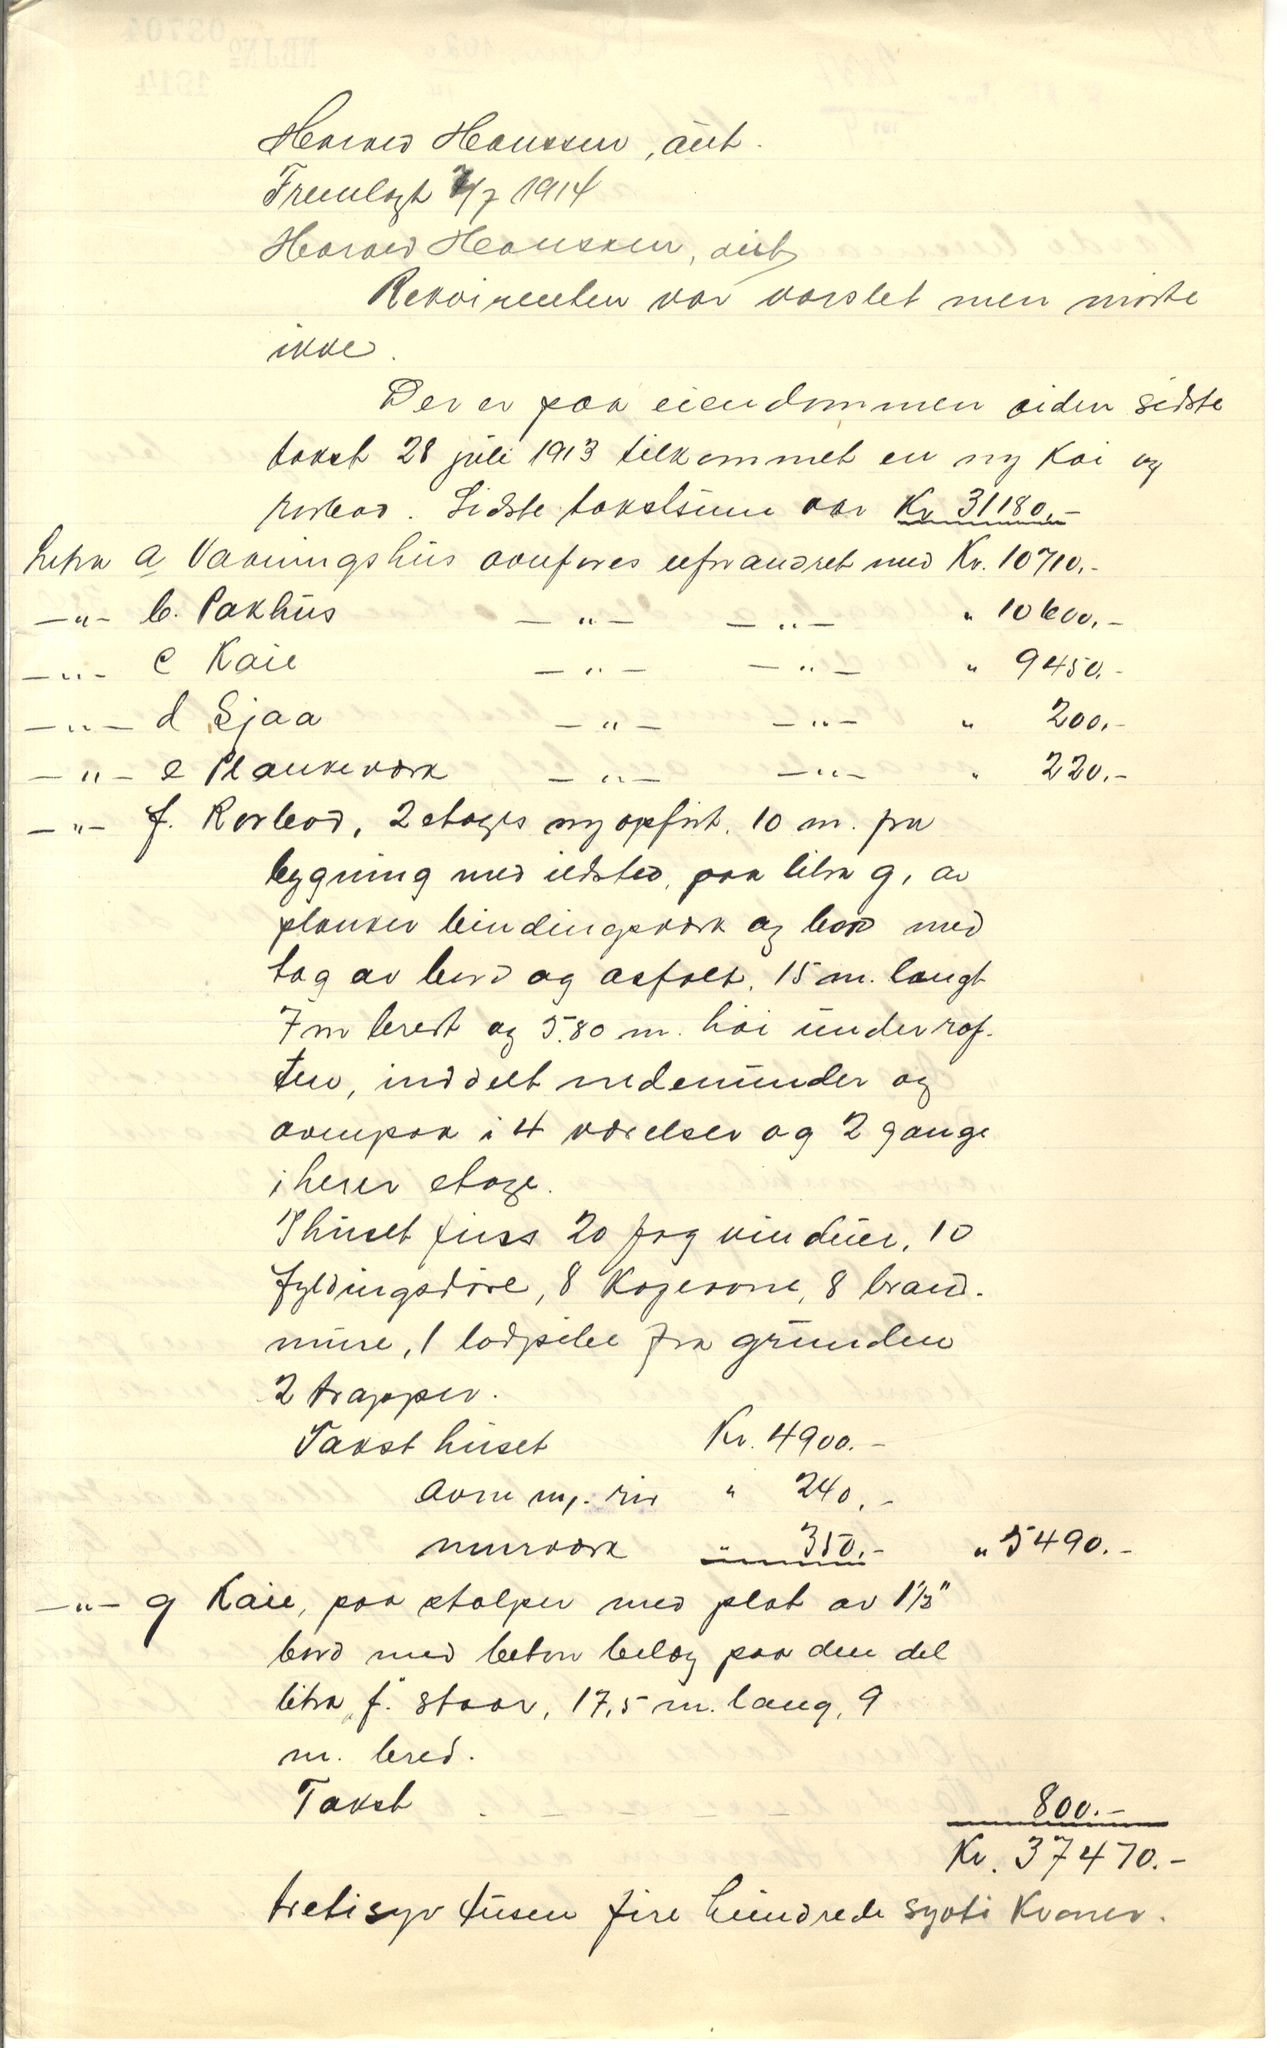 Harald Hanssen, aut.
Fremlagt 7/7 1914
Harald Hanssen, aut
Rekvirenten var varslet men møtte
ikke.
Der er paa eiendommen siden sidste
takst 28 juli 1913 tilkommet en ny kai og
rorbod. Sidste takstsum var Kr 31180.-
Litra a Vaaningshus opføres uforandret med Kr. 10710.-
-"- b. Pakhus -"- -"- " 10600.-
-"- c Kaie -"- -"- " 9450.-
-"- d Sjaa -"- -"- " 200.-
-"- e Plankeværk -"- -"- " 220.-
-"- f. Rorbod, 2 etages ny opført. 10 m. fra
bygning med ildsted, paa litra g, av
planker bindingsværk og bord med
tag av bord og asfalt. 15 m. langt
7 m bredt og 5.80 m. høi under raf-
ten, inddelt nedenunder og
ovenpaa i 4 værelser og 2 gange
i hver etage.
I huset fins 20 fag vinduer, 10
fyldingsdøre, 8 kogeovne, 8 brand-
mure, 1 lodpibe fra grunden
2 trapper.
Takst huset Kr. 4900.-
ovne m/. rør " 240.-
murværk " 350.- " 5490.-
-"- g Kaie, paa stolper med plat av 1½"
bord med beton belæg paa den del
litra "f." staar, 17,5 m. lang, 9
m. bred.
Takst 800.-
Kr. 37470.-
tretisyv tusen fire hundrede sytti Kroner.